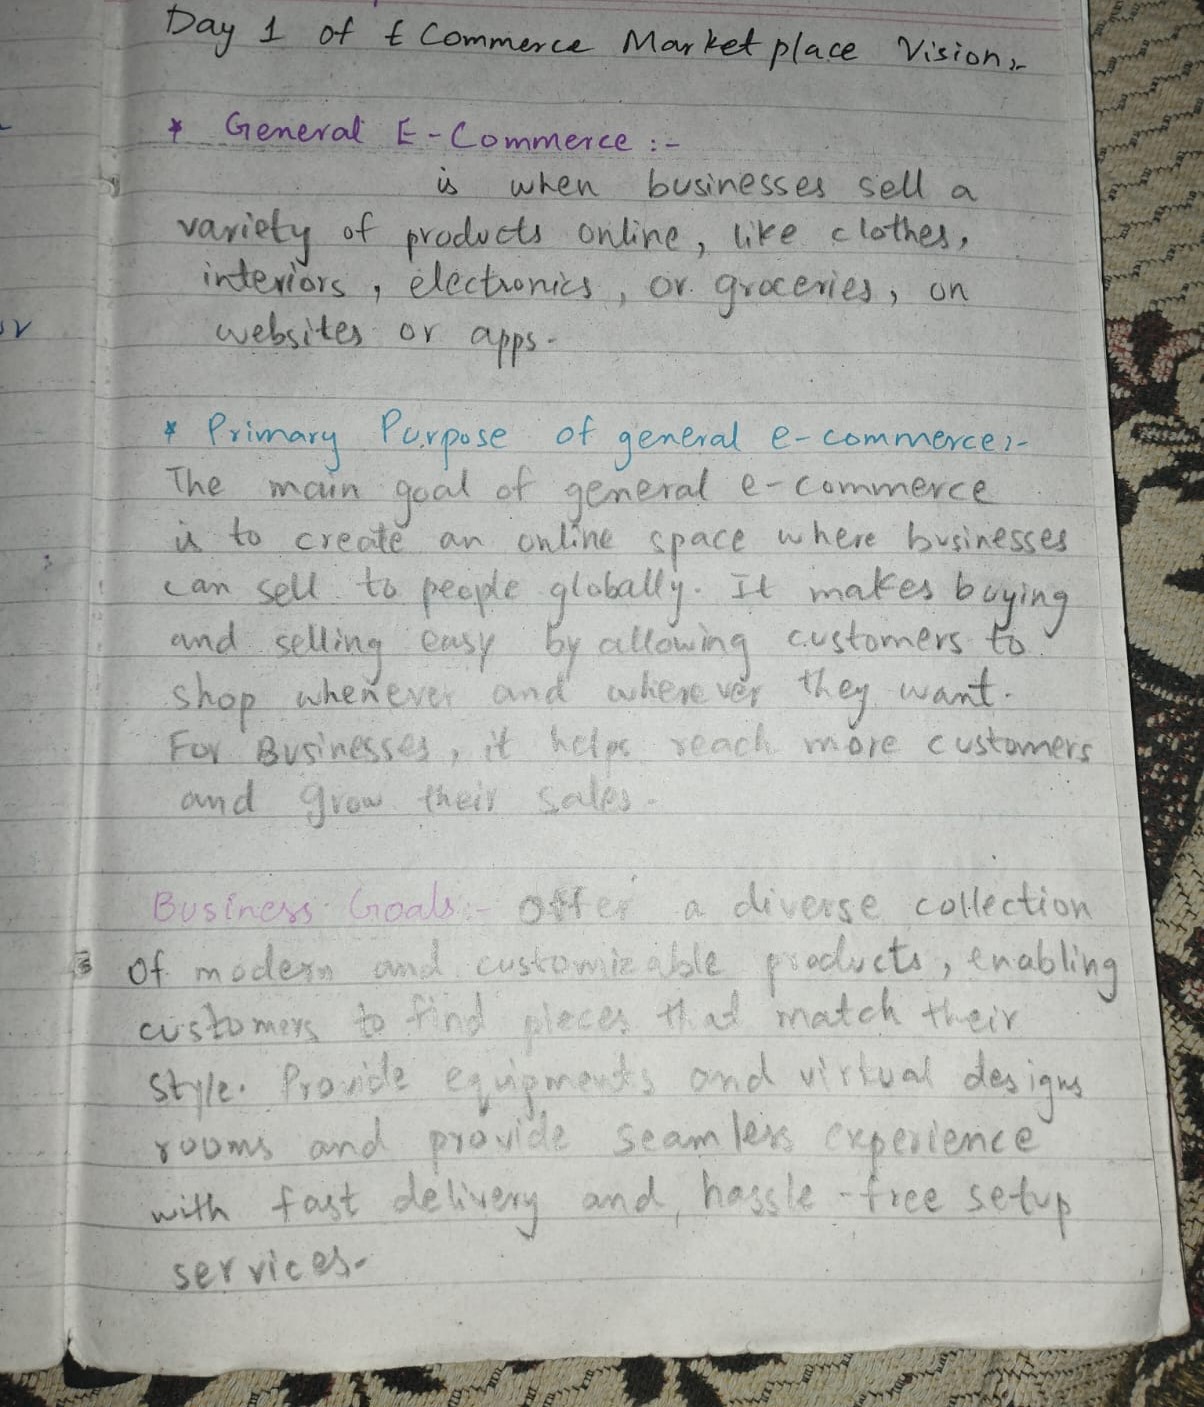 Day 1 of E Commerce Market place Vision:-
* General E-Commerce :-
is when businesses sell a
variety of products online, like clothes,
interiors, electronics, or groceries, on
websites or apps.
* Primary Purpose of general e-commerce:-
The main goal of general e-commerce
is to create an online space where businesses
can sell to people globally. It makes buying
and selling easy by allowing customers to
shop whenever and where ver they want.
For Businesses, it helps reach more customers
and grow their sales.
Business Goals:- Offer a diverse collection
Of modern and customizable products, enabling
customers to find pieces that match their
style. Provide equipments and virtual designs
rooms and provide seamless experience
with fast delivery and, hassle-free setup
services.